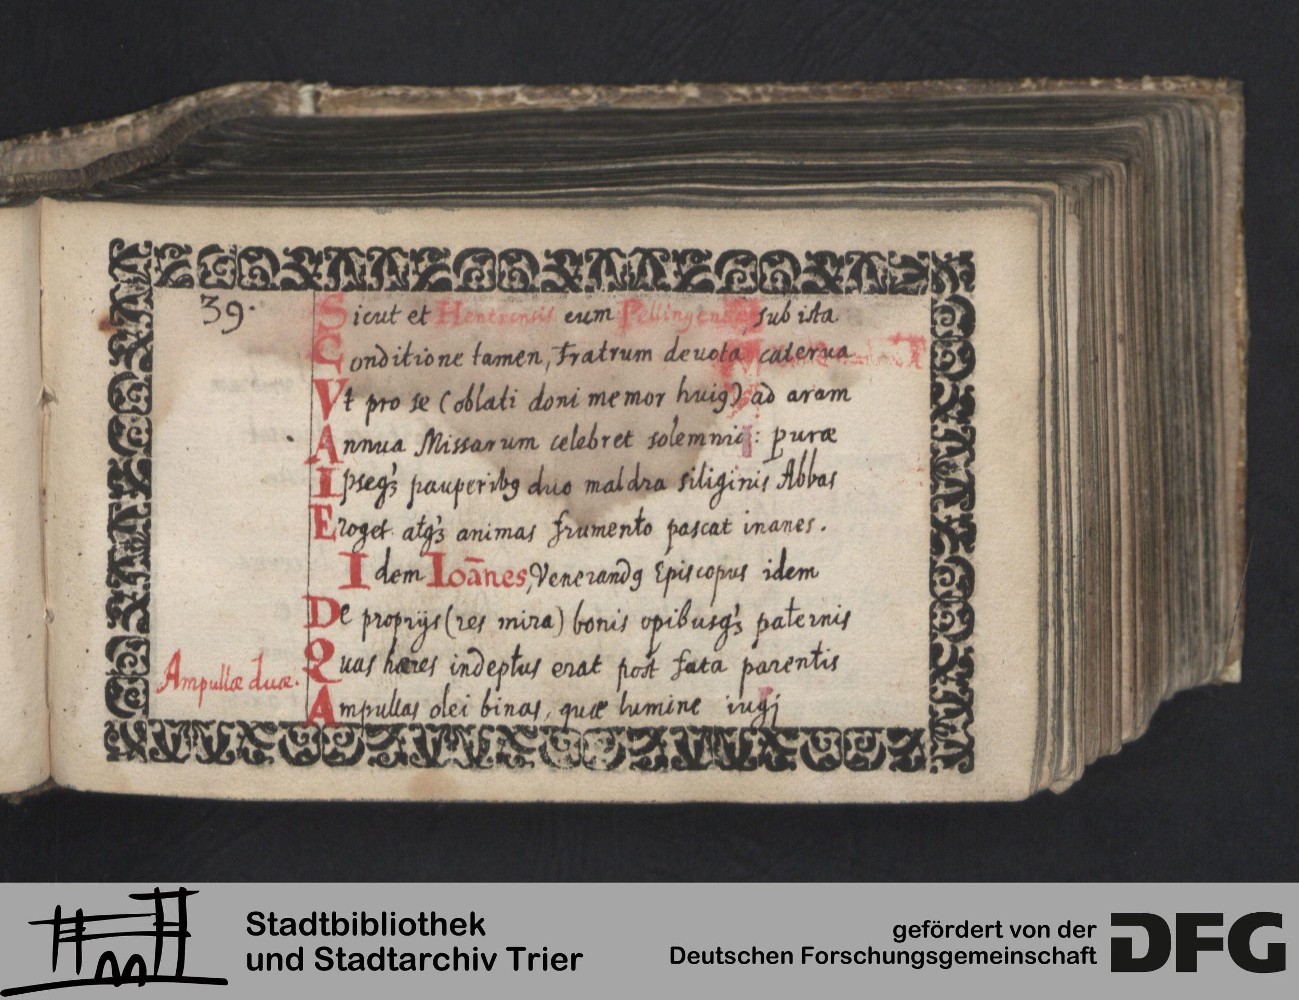 39.
Sicut et Hentrensis cum Pellingen sub ista
Conditione tamen, Fratrum deuota caterua
Vt pro se (oblati doni memor huiꝰ) ad aram
Annua Missarum celebret solemnia: puræ
Ipseq̃ꝫ pauperibꝰ duo maldra siliginis Abbas
Eroget. atq̃ꝫ animas frumento pascat inanes.
Idem Ioañes, Venerandꝰ Episcopus idem
De proprijs (res mira) bonis opibusq̃ꝫ paternis
Quas hæres indeptus erat post fata parentis
Ampullæ duæ.
Ampullas olei binas, quæ lumine iugj
Stadtbibliothek
und Stadtarchiv Trier
gefördert von der
Deutschen Forschungsgemeinschaft
DFG